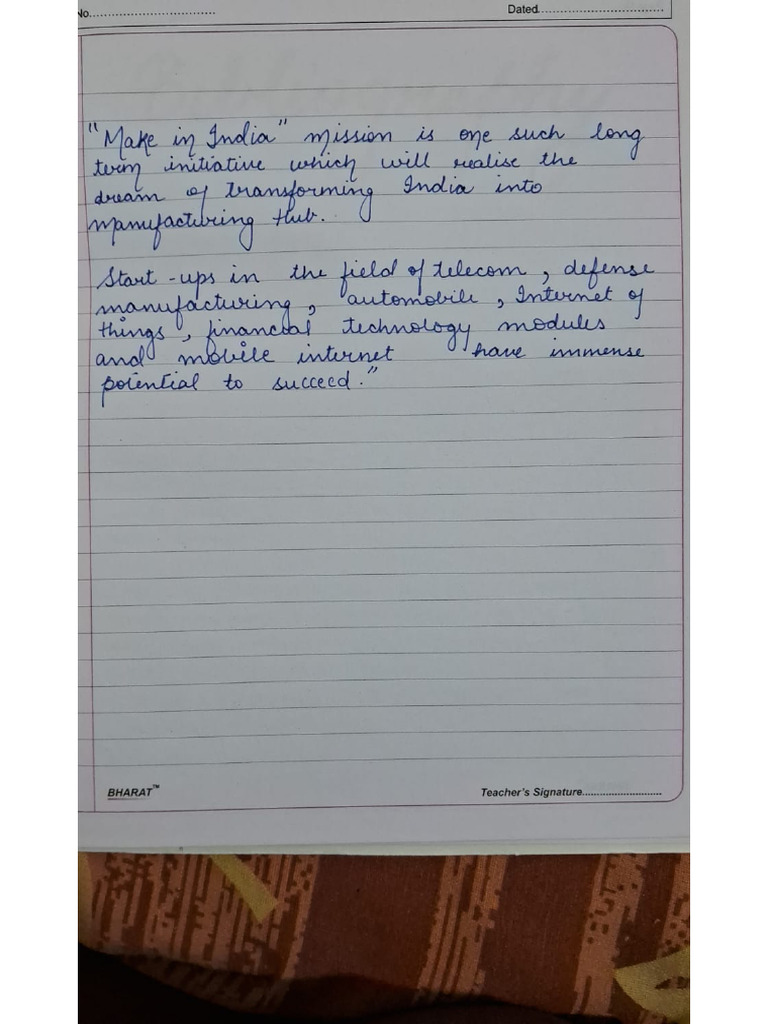 No.................................
Dated.................................
"Make in India" mission is one such long
term initiative which will realise the
dream of transforming India into
manufacturing Hub.
Start-ups in the field of telecom, defense
manufacturing, automobile, Internet of
things, financial technology modules
and mobile internet have immense
potential to succeed."
BHARAT™
Teacher's Signature..........................